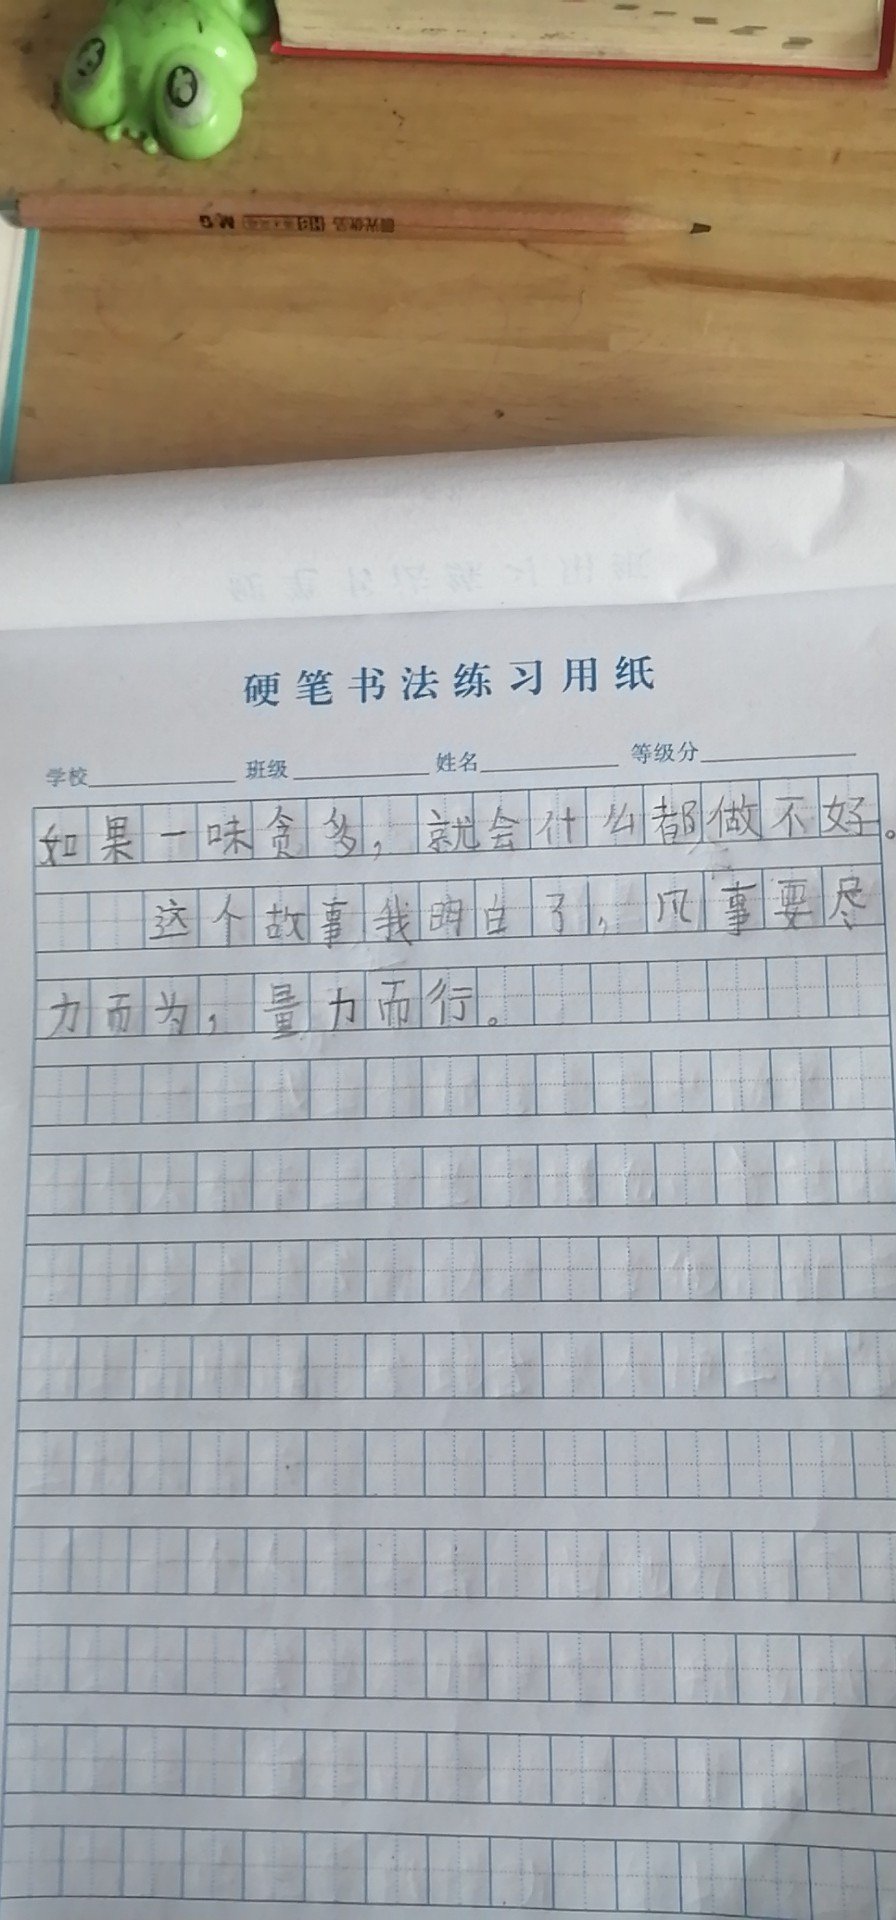 M&G
硬笔书法练习用纸
学校 班级 姓名 等级分
如果一味贪多，就会什么都做不好。
这个故事我明白了，凡事要尽
力而为，量力而行。